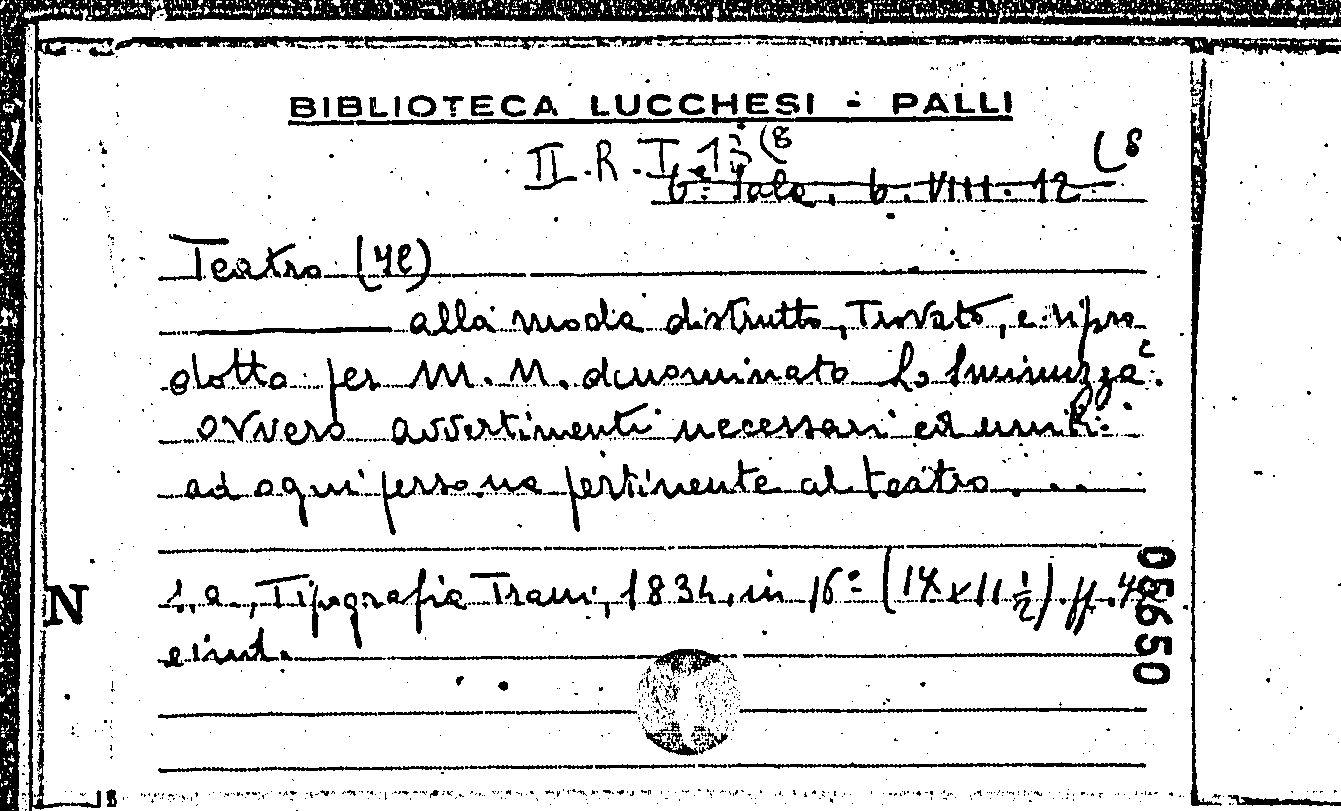 BIBLIOTECA LUCCHESI - PALLI
II.R.I.13 (8
6ª Sala. b. VIII. 12 (8
Teatro (Il)
alla moda distrutto, Trovato, e ripro
dotto per M. M. denominato Lo
ovvero avvertimenti necessari ed
ad ogni persona pertinente al teatro...
s.a., Tipografia Trani, 1834, in 16º (17 x 11 1/2). pp. 48
N
056650